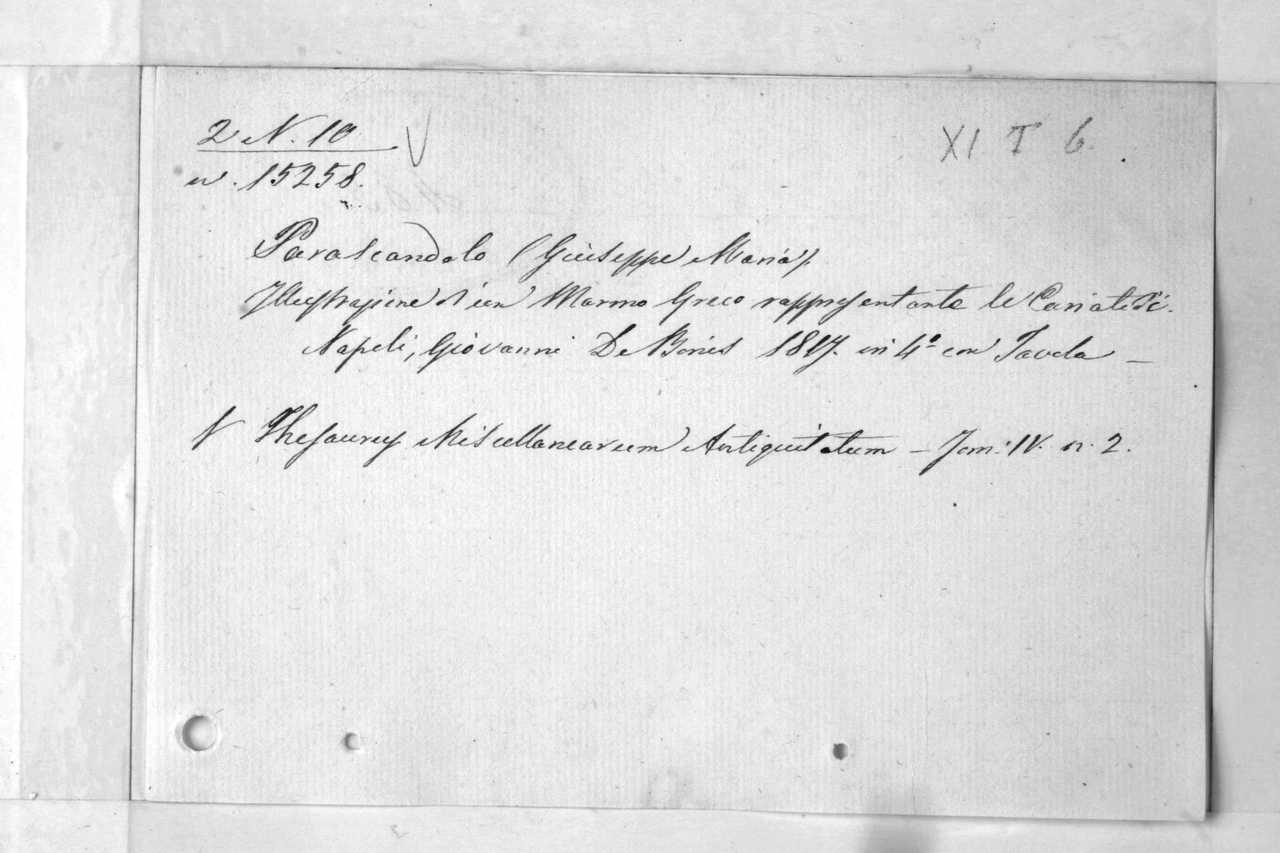 2 N. 10 V
XI T 6.
n. 15258.
Parascandolo (Giuseppe Maria).
Illustrazione d'un Marmo Greco rappresentante le Cariatidi.
Napoli, Giovanni De Bonis 1817. in 4º con Tavola —
V Thesaurus Miscellanearum Antiquitatum — Tom: IV. n. 2.